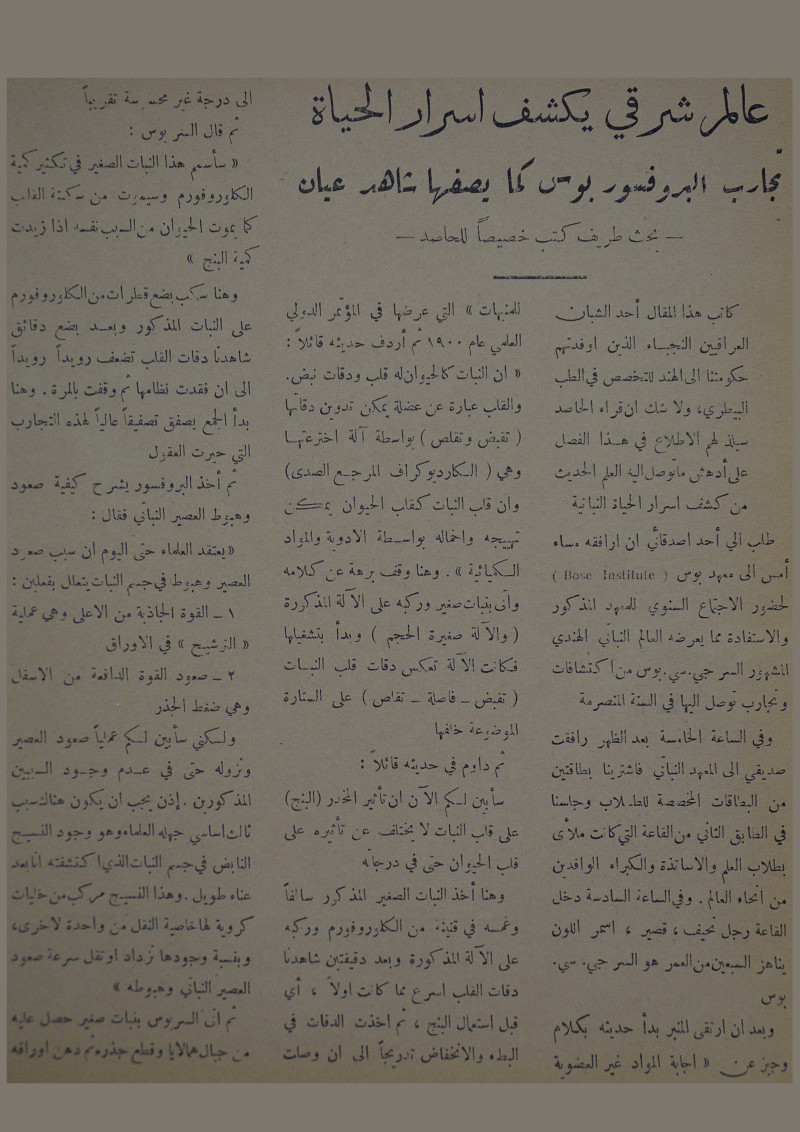 عالم شرقي يكشف اسرار الحياة
تجارب البروفسور بوس كما يصفها شاهد عيان
— بحث طريف كتب خصيصاً للحاصد —
كاتب هذا المقال أحد الشبان
العراقيين النجباء الذين اوفدتهم
حكومتنا الى الهند للتخصص في الطب
البيطري، ولا شك ان قراء الحاصد
سيلذ لهم الاطلاع في هذا الفصل
على أدهش ماتوصل اليه العلم الحديث
من كشف اسرار الحياة النباتية
طلب الي أحد اصدقائي ان ارافقه مساء
أمس الى معهد بوس ( Bose Institute )
لحضور الاجتماع السنوي للمعهد المذكور
والاستفادة مما يعرضه العالم النباتي الهندي
المشهور السر جي.سي.بوس من اكتشافات
وتجارب توصل اليها في السنة المنصرمة
وفي الساعة الخامسة بعد الظهر رافقت
صديقي الى المعهد النباتي فاشترينا بطاقتين
من البطاقات المخصصة للطلاب وجلسنا
في الطابق الثاني من القاعة التي كانت ملأى
بطلاب العلم والاساتذة والكبراء الوافدين
من انحاء العالم . وفي الساعة السادسة دخل
القاعة رجل نحيف ، قصير ، اسمر اللون
يناهز السبعين من العمر هو السر جي. سي.
بوس
وبعد ان ارتقى المنبر بدأ حديثه بكلام
وجيز عن « اجابة المواد غير العضوية
للمنبهات » التي عرضها في المؤتمر الدولي
العلمي عام ١٩٠٠ ثم أردف حديثه قائلاً :
« ان النبات كالحيوان له قلب ودقات نبض.
والقلب عبارة عن عضلة يمكن تدوين دقاتها
( تقبض وتقلص ) بواسطة آلة اخترعتها
وهي ( الكارديوكراف المرجع الصدى)
وان قلب النبات كقلب الحيوان يمكن
تهييجه واخماله بواسطة الادوية والمواد
الكيميائية » . وهنا وقف برهة عن كلامه
واتى بنبات صغير وركبه على الآلة المذكورة
( والآلة صغيرة الحجم ) وبدأ بتشغيلها
فكانت الآلة تعكس دقات قلب النبات
( تقبض ــ فاصلة ــ تقلص ) على الستارة
الموضوعة خلفها
ثم داوم في حديثه قائلاً :
سأبين لكم الآن ان تأثير المخدر (البنج)
على قلب النبات لا يختلف عن تأثيره على
قلب الحيوان حتى في درجاته
وهنا أخذ النبات الصغير المذكور سالفاً
وغمسه في قنينة من الكلوروفورم وركبه
على الآلة المذكورة وبعد دقيقتين شاهدنا
دقات القلب اسرع مما كانت اولاً ، أي
قبل استعمال البنج ، ثم اخذت الدقات في
البطء والانخفاض تدريجاً الى ان وصلت
الى درجة غير محسوسة تقريباً
ثم قال السر بوس :
« سأسم هذا النبات الصغير في تكثير كمية
الكلوروفورم وسيموت من سكتة القلب
كما يموت الحيوان من السبب نفسه اذا زيدت
كمية البنج »
وهنا سكب بضع قطرات من الكلوروفورم
على النبات المذكور وبعد بضع دقائق
شاهدنا دقات القلب تضعف رويداً رويداً
الى ان فقدت نظامها ثم وقفت بالمرة . وهنا
بدأ الجمع يصفق تصفيقاً عالياً لهذه التجارب
التي حيرت العقول
ثم أخذ البروفسور يشرح كيفية صعود
وهبوط العصير النباتي فقال :
«يعتقد العلماء حتى اليوم ان سبب صعود
العصير وهبوط في جسم النبات يتعلل بفعلين :
١ ــ القوة الجاذبة من الاعلى وهي عملية
« الترشيح » في الاوراق
٢ ــ صعود القوة الدافعة من الاسفل
وهي ضغط الجذر
ولكني سأبين لكم عملياً صعود العصير
ونزوله حتى في عدم وجود السببين
المذكورين . إذن يجب ان يكون هناك سبب
ثالث اساسي جهله العلماء وهو وجود النسيج
النابض في جسم النبات الذي اكتشفته انا بعد
عناء طويل . وهذا النسيج مركب من خليات
كروية لها خاصية النقل من واحدة لاخرى،
وبنسبة وجودها تزداد او تقل سرعة صعود
العصير النباتي وهبوطه »
ثم اتى السر بوس بنبات صغير حصل عليه
من جبال همالايا وقطع جذره ثم دهن اوراقه